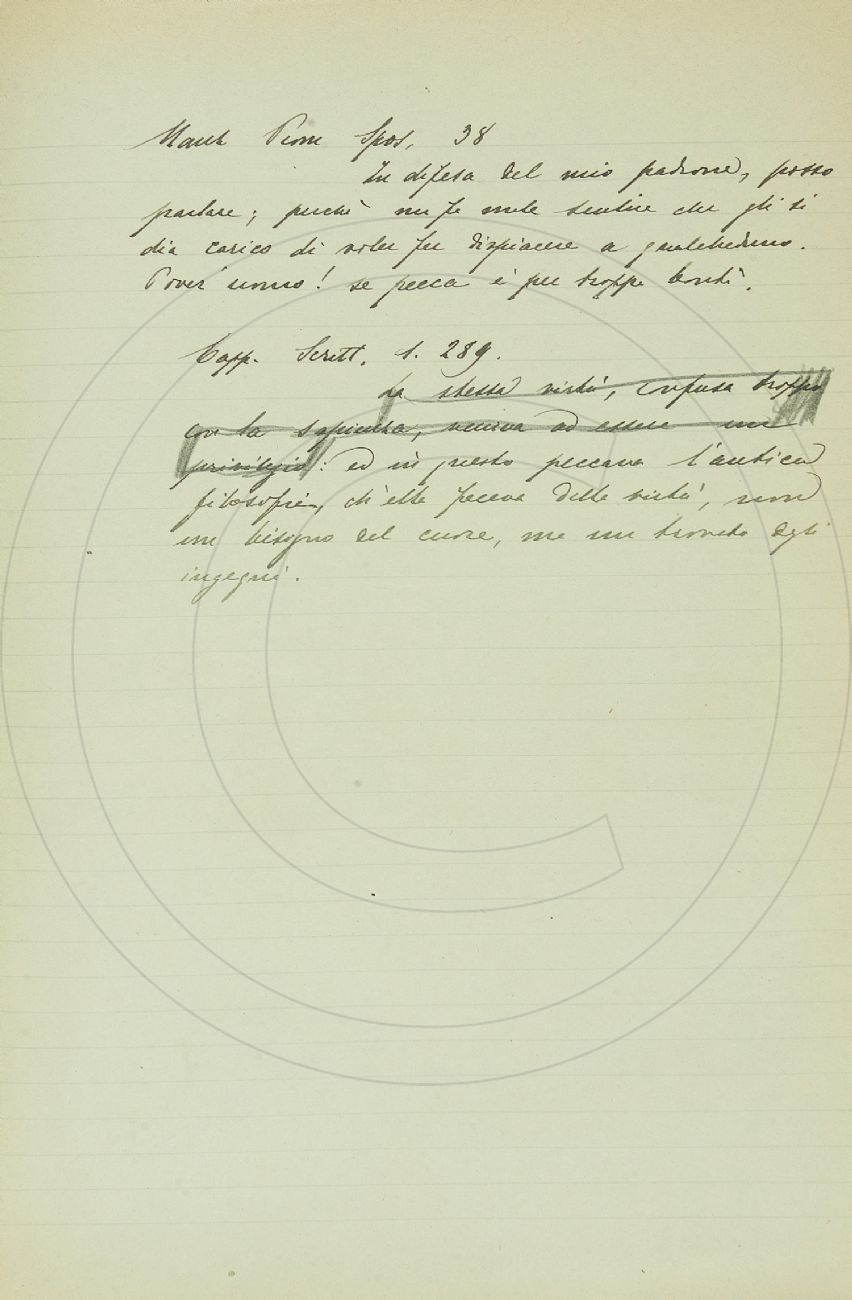 Manz. Prom. Spos. 38
In difesa del mio padrone, posso
parlare; perchè mi fa male sentire che gli si
dia carico di voler far dispiacere a qualcheduno.
Pover' uomo! se pecca è per troppa bontà.
Capp. Scritt. 1. 289.
La stessa virtù, confusa troppo
con la sapienza, veniva ad essere un
privilegio: ed in questo peccava l'antica
filosofia, ch'ella faceva della virtù, non
un bisogno del cuore, ma un trovato degli
ingegni.